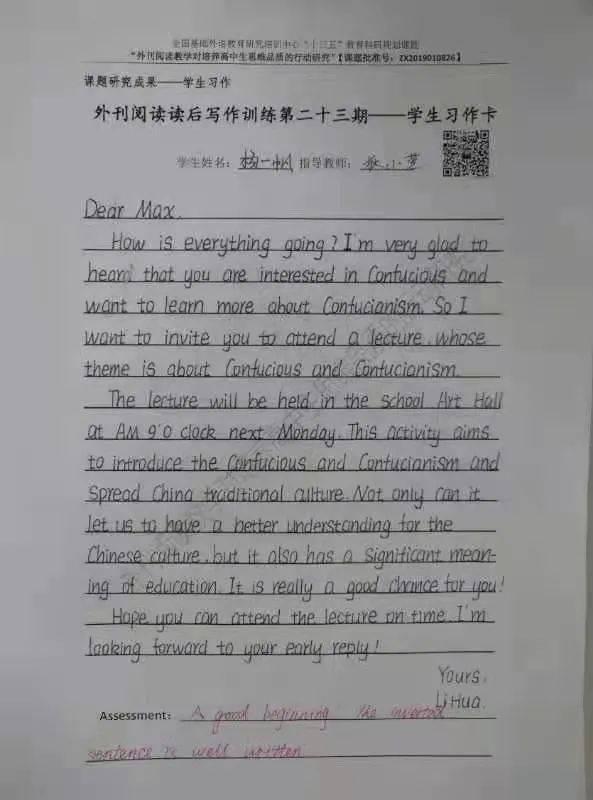 全国基础外语教育研究培训中心“十三五”教育科研规划课题
“外刊阅读教学对培养高中生思维品质的行动研究”【课题批准号：ZX2019010826】
课题研究成果——学生习作
外刊阅读读后写作训练第二十三期——学生习作卡
学生姓名：杨一帆 指导教师：小
Dear Max.
How is everything going? I'm very glad to
hear that you are interested in Confucious and
want to learn more about Confucianism. So I
want to invite you to attend a lecture, whose
theme is about Confucious and Confucianism.
The lecture will be held in the school Art Hall
at AM 9'0 clock next Monday. This activity aims
to introduce the Confucious and Confucianism and
spread China traditional culture. Not only can it
let us to have a better understanding for the
Chinese culture, but it also has a significant mean-
ing of education. It is really a good chance for you!
Hope you can attend the lecture on time. I'm
looking forward to your early reply!
Yours,
Li Hua.
Assessment: A good beginning. The inverted
sentence is well written